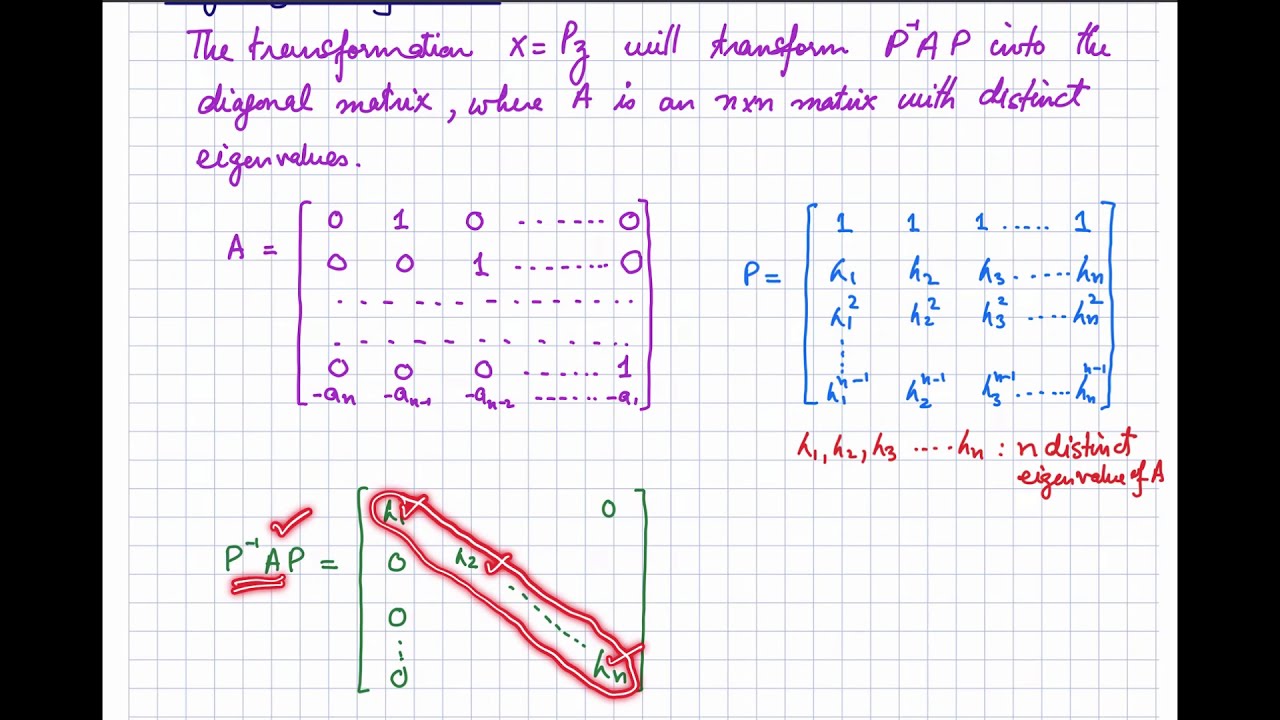 The transformation x = Pz will transform P⁻¹AP into the
diagonal matrix, where A is an n×n matrix with distinct
eigenvalues.
A = [ 0 1 0 ........ 0
0 0 1 ......... 0
. . . . . . . . . . . . . .
. . . . . . . . . . . . . .
0 0 0 ....... 1
-aₙ -aₙ₋₁ -aₙ₋₂ ....... -a₁ ]
P = [ 1 1 1 ..... 1
λ₁ λ₂ λ₃ ...... λₙ
λ₁² λ₂² λ₃² .... λₙ²
⋮
λ₁ⁿ⁻¹ λ₂ⁿ⁻¹ λ₃ⁿ⁻¹ ...... λₙⁿ⁻¹ ]
λ₁, λ₂, λ₃ .... λₙ : n distinct
eigenvalue of A
P⁻¹AP = [ λ₁ 0
0 λ₂
0 ⋱
⋮ λₙ
0 ]